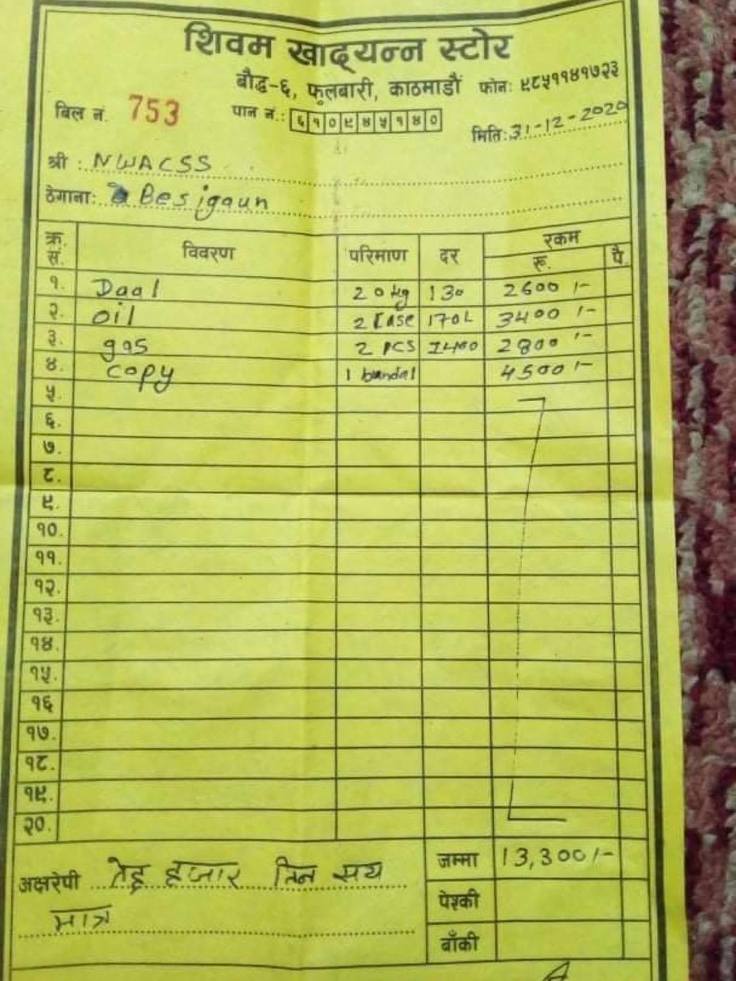 शिवम खाद्यन्न स्टोर
बौद्ध-६, फुलबारी, काठमाडौं फोन: ९८५११४१७२३
बिल नं. 753 पान नं.: ६१०९४५१४०
मिति: 31-12-2020
श्री: NWACSS
ठेगाना: Besigaun
क्र. सं. विवरण परिमाण दर रकम
रू. पै.
१. Daal 20 kg 130 2600 /-
२. oil 2 case 170L 3400 /-
३. gas 2 PCS 1400 2800 /-
४. copy 1 bandal 4500 /-
५.
६.
७.
८.
९.
१०.
११.
१२.
१३.
१४.
१५.
१६
१७.
१८.
१९.
२०.
जम्मा 13,300/-
अक्षरेपी तेह्र हजार तिन सय
मात्र
पेश्की
बाँकी